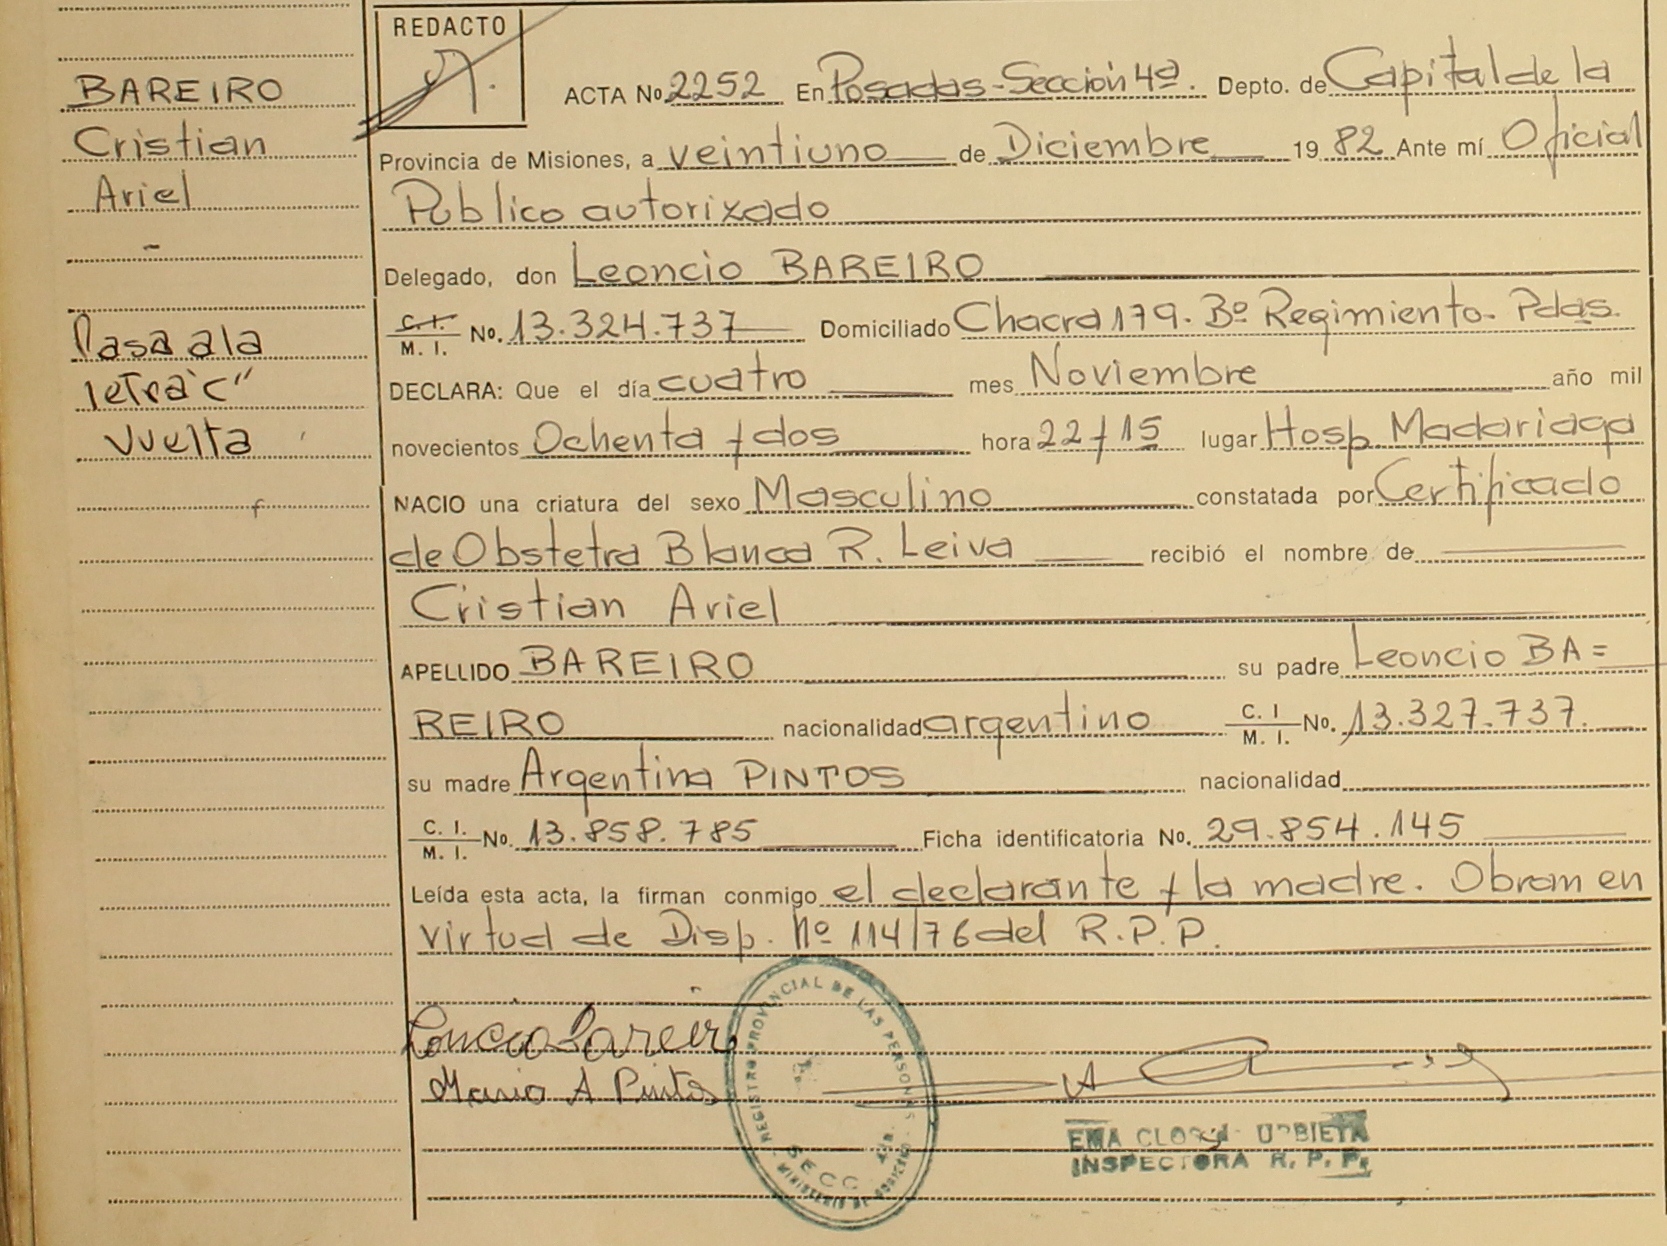 BAREIRO
Cristian
Ariel
-
Pasa a la
letra "C"
Vuelta
REDACTO
ACTA No 2252 En Posadas-Sección 4ª. Depto. de Capital de la
Provincia de Misiones, a veintiuno de Diciembre 19 82 Ante mí Oficial
Público autorizado
Delegado, don Leoncio BAREIRO
C.I. M. I. No. 13.324.737 Domiciliado Chacra 179. Bº Regimiento. Pdas.
DECLARA: Que el día cuatro mes Noviembre año mil
novecientos Ochenta y dos hora 22 y 15 lugar Hosp. Madariaga
NACIO una criatura del sexo Masculino constatada por Certificado
de Obstetra Blanca R. Leiva recibió el nombre de
Cristian Ariel
APELLIDO BAREIRO su padre Leoncio BA=
REIRO nacionalidad argentino C. I M. I. No. 13.327.737.
su madre Argentina PINTOS nacionalidad
C. I. M. I. No. 13.858.785 Ficha identificatoria No. 29.854.145
Leída esta acta, la firman conmigo el declarante y la madre. Obran en
virtud de Disp. Nº 114/76 del R.P.P.
REGISTRO PROVINCIAL DE LAS PERSONAS
SECC 4ta.
MINISTERIO DE GOBIERNO
A Pintos
EMA URBIETA
INSPECTORA R. P. P.